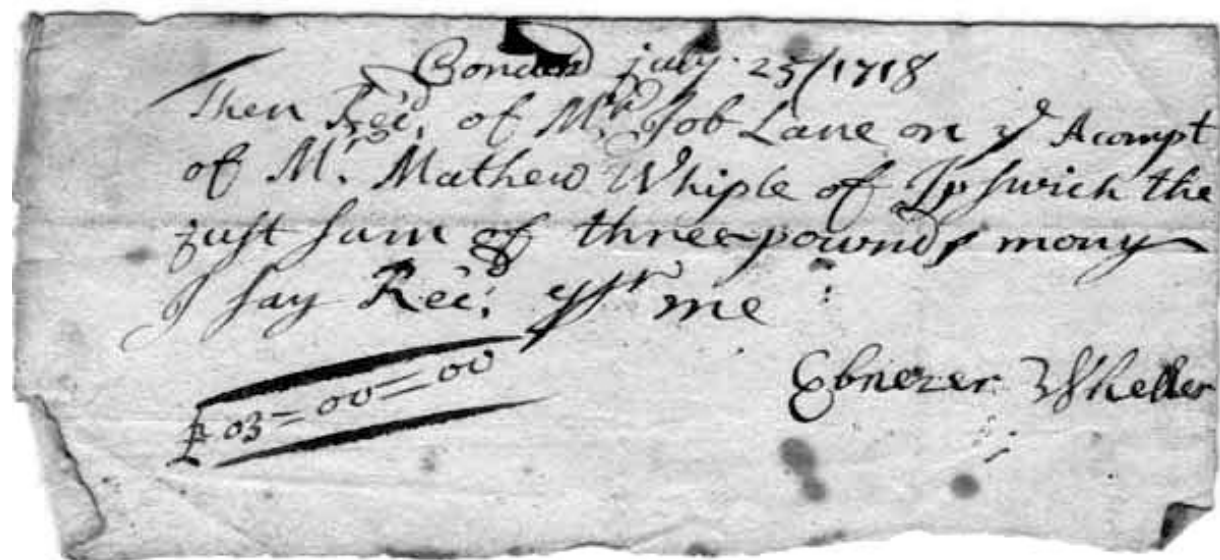 Concord july. 25/1718
Then Rec'd. of Mr. Job Lane on ye Acompt
of Mr. Mathew Whiple of Ipswich the
just sum of three pownds mony
I say Rec'd. pr me
£ 03=00=00
Ebnezer Wheller